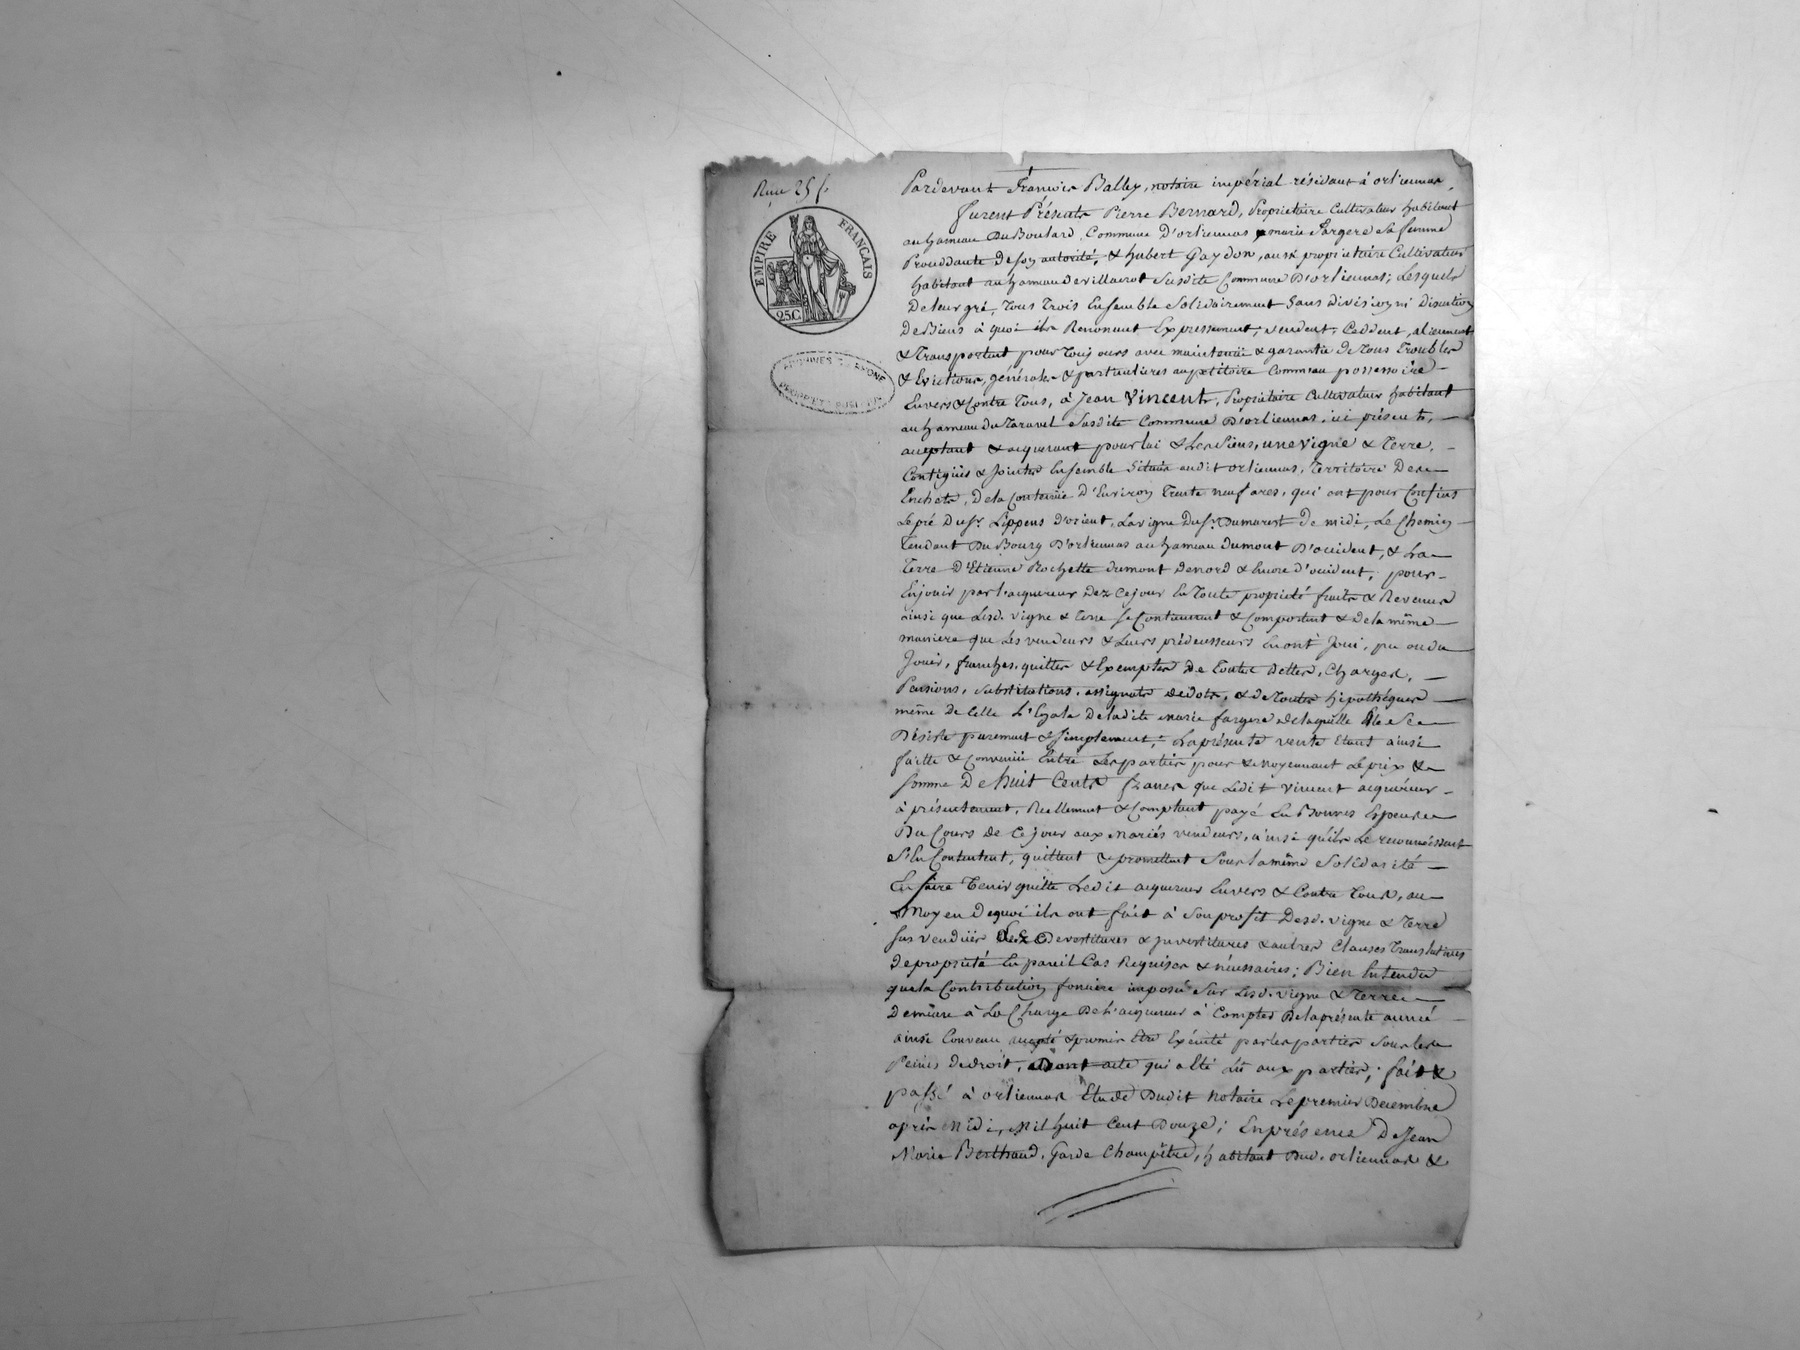 Reçu 25 f.
EMPIRE FRANÇAIS
25C
ARCHIVES DU RHONE
PROPRIÉTÉ PUBLIQUE
Pardevant François Balley, notaire impérial résidant à orliennas,
furent Présents Pierre Bernard, Proprietaire Cultivateur habitant
au hameau Du Boulard, Commune D'orliennas & marie fargere Sa femme
Procédante de son autorité, & hubert Gaydon, aussi propriétaire Cultivateur
habitant au hameau de villacrot Susdite Commune D'orliennas; Lesquels
De leur gré, Tous Trois Ensemble Solidairement Sans division ni Discution
De Biens à quoi ils Renoncent Expressement, vendent, Ceddent, alienent
& Transportent pour Toujours avec maintenüe & garantie de Tous Troubles
& Evictions, générales & particulieres au pétitoire Comme au possessoire
Envers & Contre Tous, à Jean Vincent, Proprietaire Cultivateur habitant
au hameau du Taravel Susdite Commune D'orliennas, ici présent,
acceptant & acquerant pour lui & Les Siens, une vigne & Terre,
Contigües & Jointes Ensemble Situées audit orliennas, Territoire Des
Enchets, De la Contenüe D'Environ Trente neuf ares, qui ont pour Confins
Le pré Du Sr. Lippens D'orient, La vigne Du Sr. Dumarest De midi, Le Chemin
Tendant Du Bourg D'orliennas au hameau Dumont D'occident, & La
Terre D'Etienne Rochette dumont De nord & Encore d'occident, pour
En jouir par L'acquereur Dez Ce jour En Toute propriété fruits & Revenus
ainsi que Lesd. vigne & Terre Se Contiennent & Comportent & de la même
maniere que Les vendeurs & Leurs prédecesseurs En ont Joui, pu ou du
Jouir, franches, quittes & Exemptes De Toutes Dettes, Charges,
Pensions, Substitutions, assignats de dots, & de Toutes hipothéques
même de Celle L'Egale De ladite marie fargere de laquelle Elle Se
Désiste purement & Simplement; La présente vente Etant ainsi
faitte & Convenüe Entre Les parties pour & moyennant Le prix &
Somme De huit Cents francs que Ledit vincent acquéreur
à présentement, Reellement & Comptant payé En Bonnes Especes
Du Cours de Ce jour aux mariés vendeurs, ainsi qu'ils Le reconnoissent
S'En Contentent, quittent & promettent Sous la même Solidarité
En faire Tenir quitte Ledit acquereur Envers & Contre Tous, au
Moyen De quoi ils ont fait à Son profit Desd. vigne & Terre
Sus vendües Les Devestitures & Investitures & autres Clauses Translatives
de propriété En pareil Cas Requises & nécessaires; Bien Entendu
que la Contribution fonciere imposée Sur Lesd. vigne & Terre
Demeure à La Charge De L'acquereur à Compter De la présente année
ainsi Convenu accepté & promis Etre Exécuté par les parties Sous les
Peines de droit, Dont acte qui a Eté Lû aux parties; fait &
passé à orliennas Etude Dudit notaire Le premier Decembre
après Midi, Mil huit Cent Douze; En présence De Jean
Marie Berthaud, Garde Champêtre, habitant Dud. orliennas &